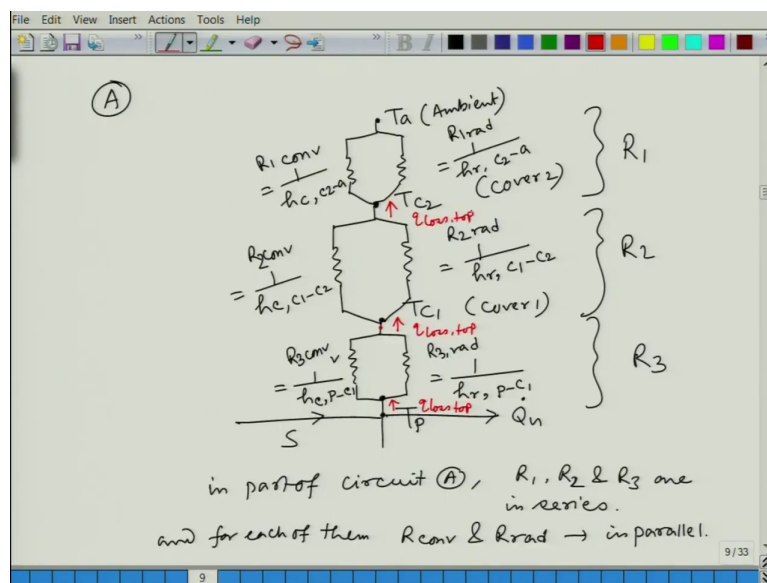 File Edit View Insert Actions Tools Help
A
Ta (Ambient)
R1 conv = 1/hc, c2-a
R1rad = 1/hr, c2-a
(cover2)
R1
TC2
qloss,top
R2conv = 1/hc, c1-c2
R2rad = 1/hr, c1-c2
R2
TC1 (cover1)
qloss,top
R3conv = 1/hc, p-c1
R3,rad = 1/hr, p-c1
R3
qloss,top
Tp
S
Q̇u
in part of circuit A, R1, R2 & R3 are
in series.
and for each of them Rconv & Rrad → in parallel.
9/33
9